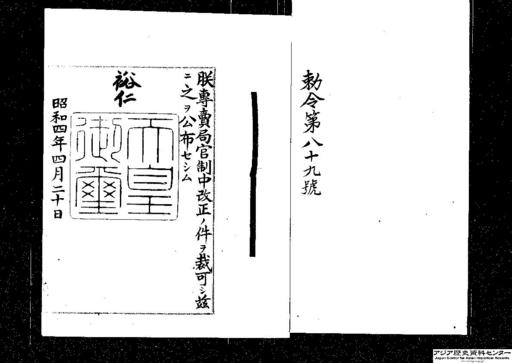 勅令第八十九號
朕專賣局官制中改正ノ件ヲ裁可シ茲
ニ之ヲ公布セシム
裕仁
天皇
御璽
昭和四年四月二十日
アジア歴史資料センター
Japan Center for Asian Historical Records